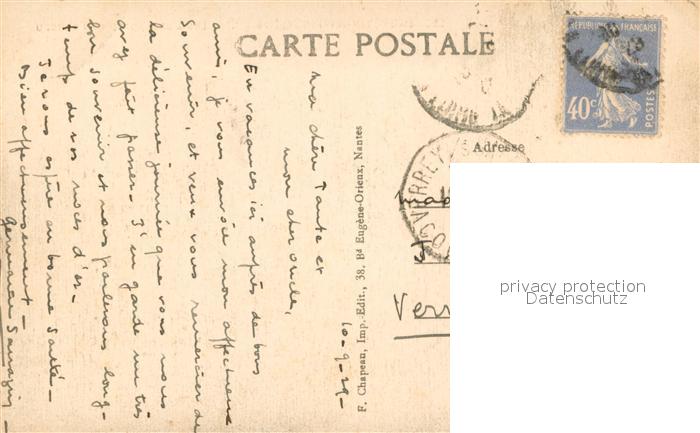 CARTE POSTALE
RÉPUBLIQUE FRANÇAISE
40c
POSTES
Adresse
Verr
F. Chapeau, Imp.-Edit., 38, Bd Eugène-Orieux, Nantes
10-9-29-
Ma chère Tante et
mon cher oncle,
En vacances ici auprès de bons
amis, je vous envoie mon affectueux
Souvenir, et veux vous remercier de
la délicieuse journée que vous nous
avez fait passer- J'en garde un très
bon souvenir et nous parlerons long-
temps de vos noces d'or-
Je vous espère en bonne Santé-
Bien affectueusement-
Germaine
privacy protection
Datenschutz